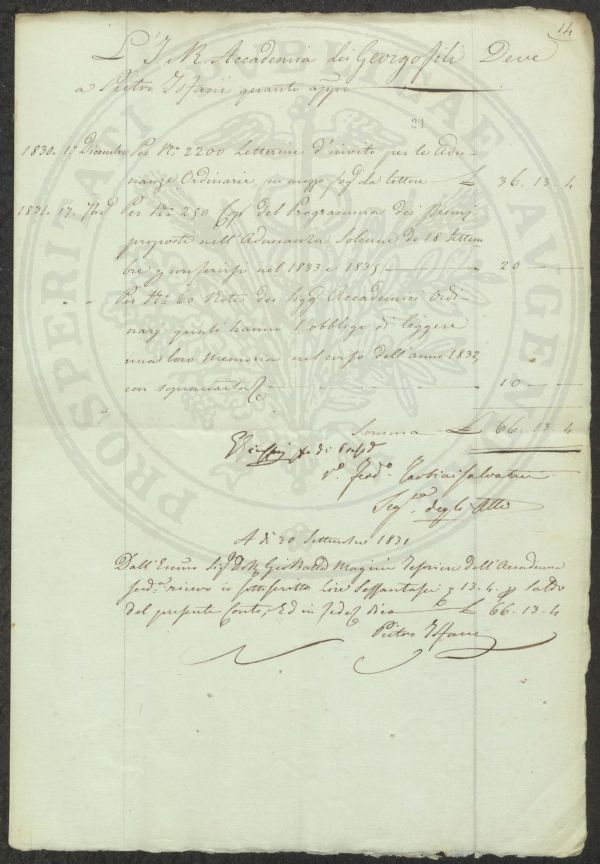 14
L'I. R. Accademia dei Georgofili Deve
a Pietro quanto appo
21
1830. 1º Dicembre Per Nº 2200 Letterine d'invito per le Adu-
nanze Ordinarie, in mezzo fogº da lettere £ 36. 13. 4
1831. 17. Per Nº 250 del Programma dei Premj
proposti nell'Adunanza Solenne de 18 Settem
bre conferirsi nel 1833 e 1835 " 20
" " Per Nº 60 Note dei Sigg Accademici Ordi-
narj quali hanno l'obbligo di leggere
una loro Memoria nel corso dell'anno 1832,
con sopraccarta " 10
Somma £ 66. 13. 4
di
Vº Ferdº Tartini Salvatici
Segº degli Atti
A dì 30 Settembre 1831
Dall'Eccmo Sigr Gio Batta Magini Tesoriere dell'Accademia
ricevo io sottoscritto Lire Sessantasei 13. 4 p Saldo
del presente Conto, Ed in fede dico £ 66. 13. 4
Pietro
PROSPERITATI PUBLICAE AUGENDAE